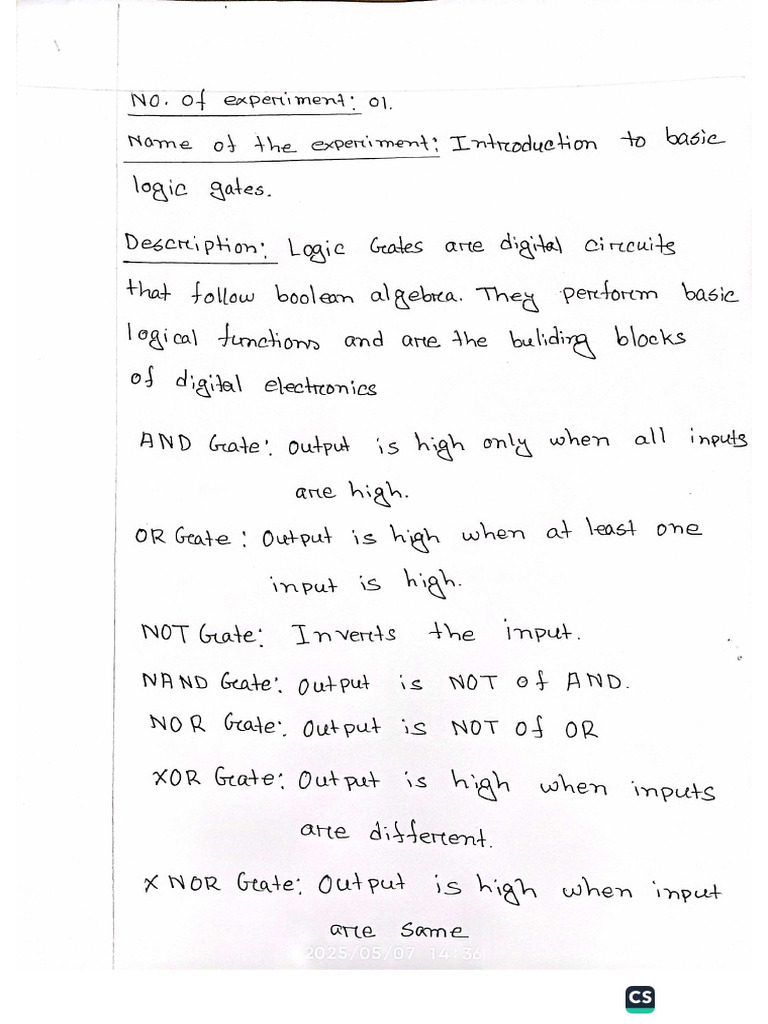 No. of experiment: 01.
Name of the experiment: Introduction to basic
logic gates.
Description: Logic Gates are digital circuits
that follow boolean algebra. They perform basic
logical functions and are the buliding blocks
of digital electronics
AND Gate: Output is high only when all inputs
are high.
OR Gate: Output is high when at least one
input is high.
NOT Gate: Inverts the input.
NAND Gate: Output is NOT of AND.
NOR Gate: Output is NOT of OR
XOR Gate: Output is high when inputs
are different.
XNOR Gate: Output is high when input
are same
2025/05/07 14:36
CS